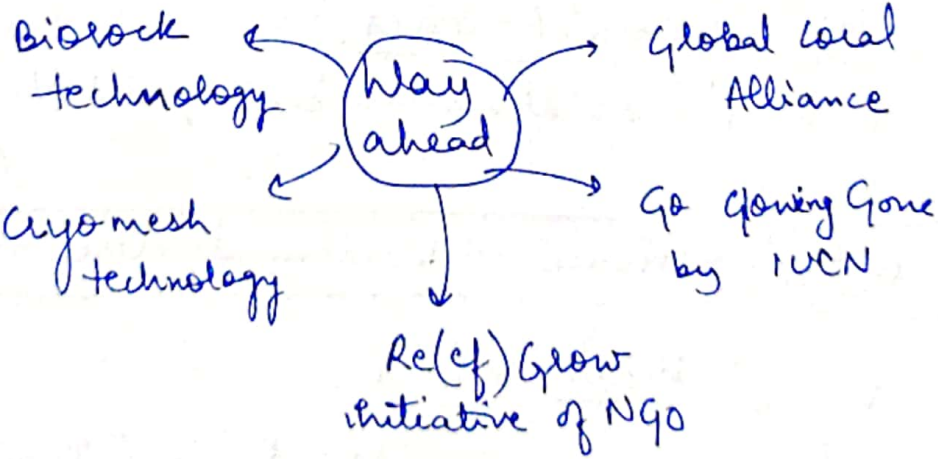 Biorock
technology
Way
ahead
Global Coral
Alliance
Cryomesh
technology
Go Glowing Gone
by IUCN
Re(ef) Grow
initiative of NGO